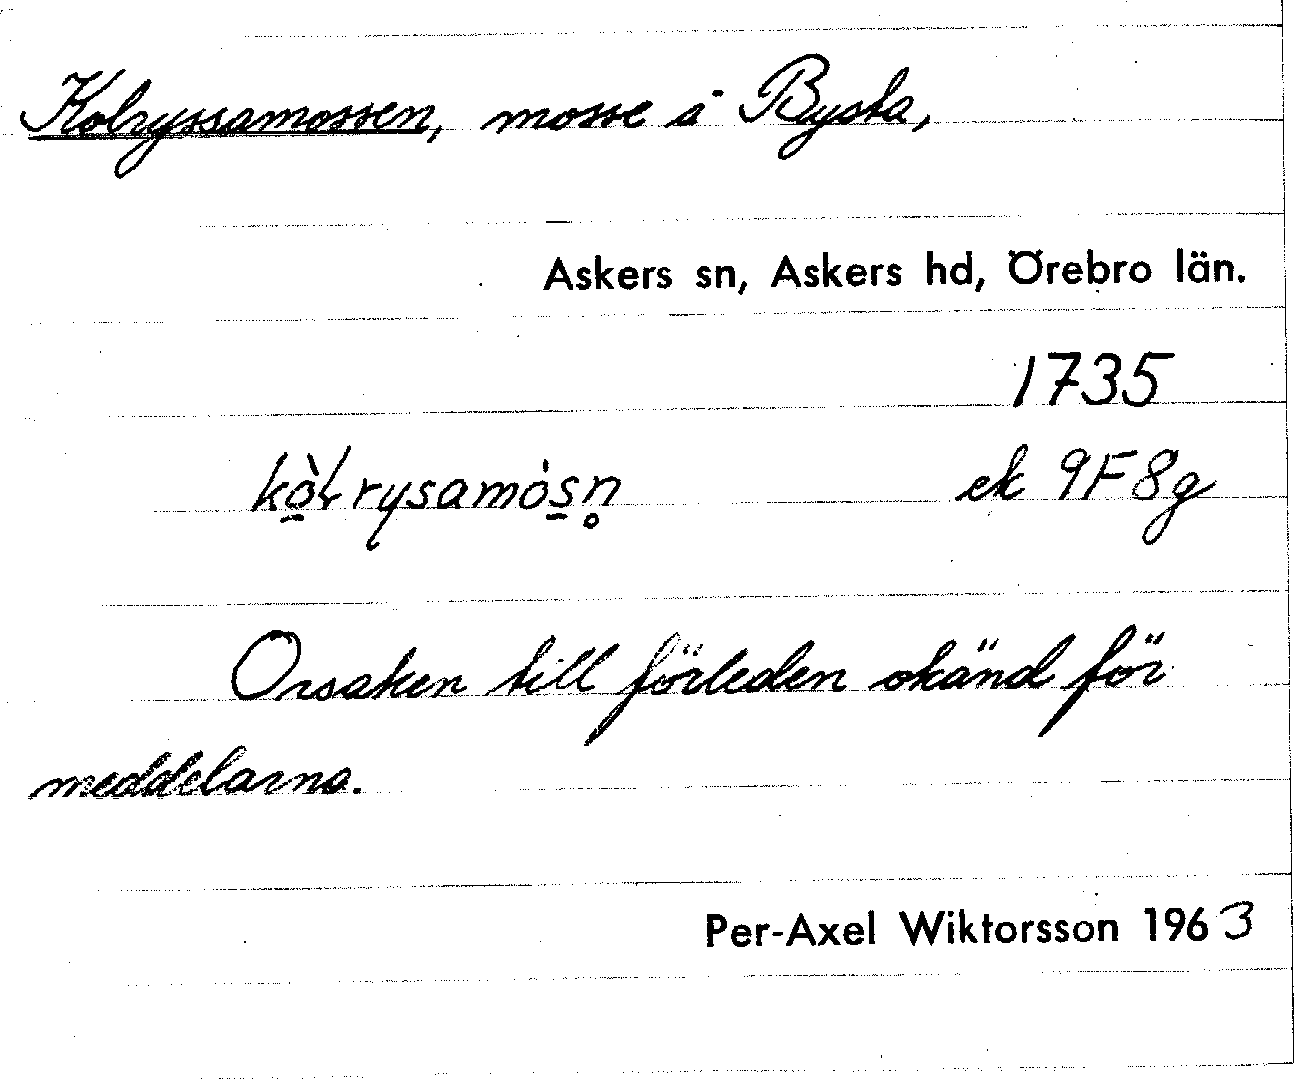 Kolryssamossen, mosse å Bysta,
Askers sn, Askers hd, Örebro län.
1735
kò̠ɫrysamòs̠n̥ ek 9F8g
Orsaken till förleden okänd för
meddelarna.
Per-Axel Wiktorsson 1963